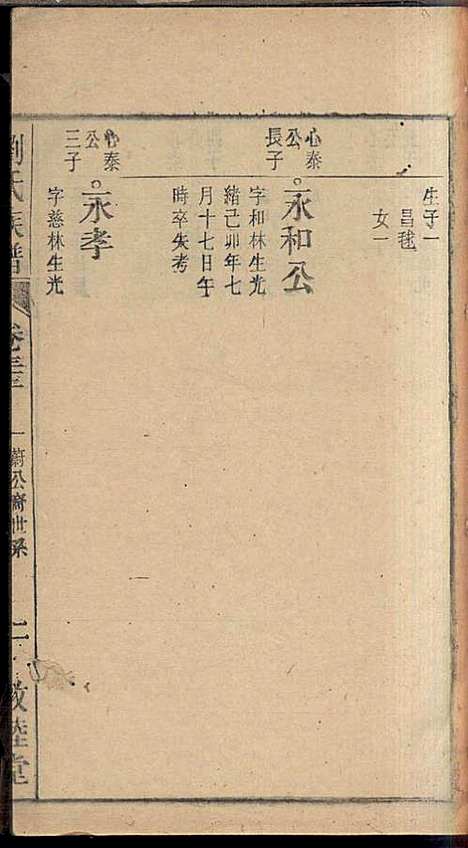 生子一
昌毬
女一
心泰
公
長子
永和公
字和林生光
緒己卯年七
月十七日午
時卒失考
心泰
公
三子
永孝
字慈林生光
劉氏族譜
蔚公裔世系
敦睦堂